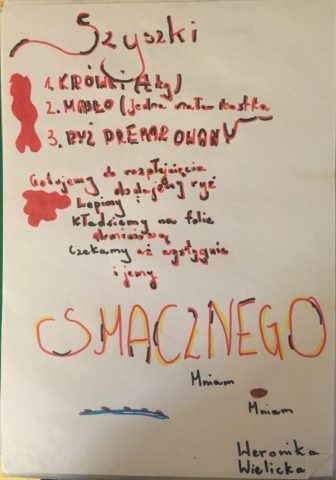 Szyszki
1. KRÓWKI (1kg)
2. MASŁO (jedna mała kostka
3. RYŻ PREPAROWANY
Gotujemy do rozpłynięcia
dodajemy ryż
Lepimy i
kładziemy na folie
aluminiową
Czekamy aż wystygnie
i jemy
SMACZNEGO
Mniam
Mniam
Weronika
Wielicka